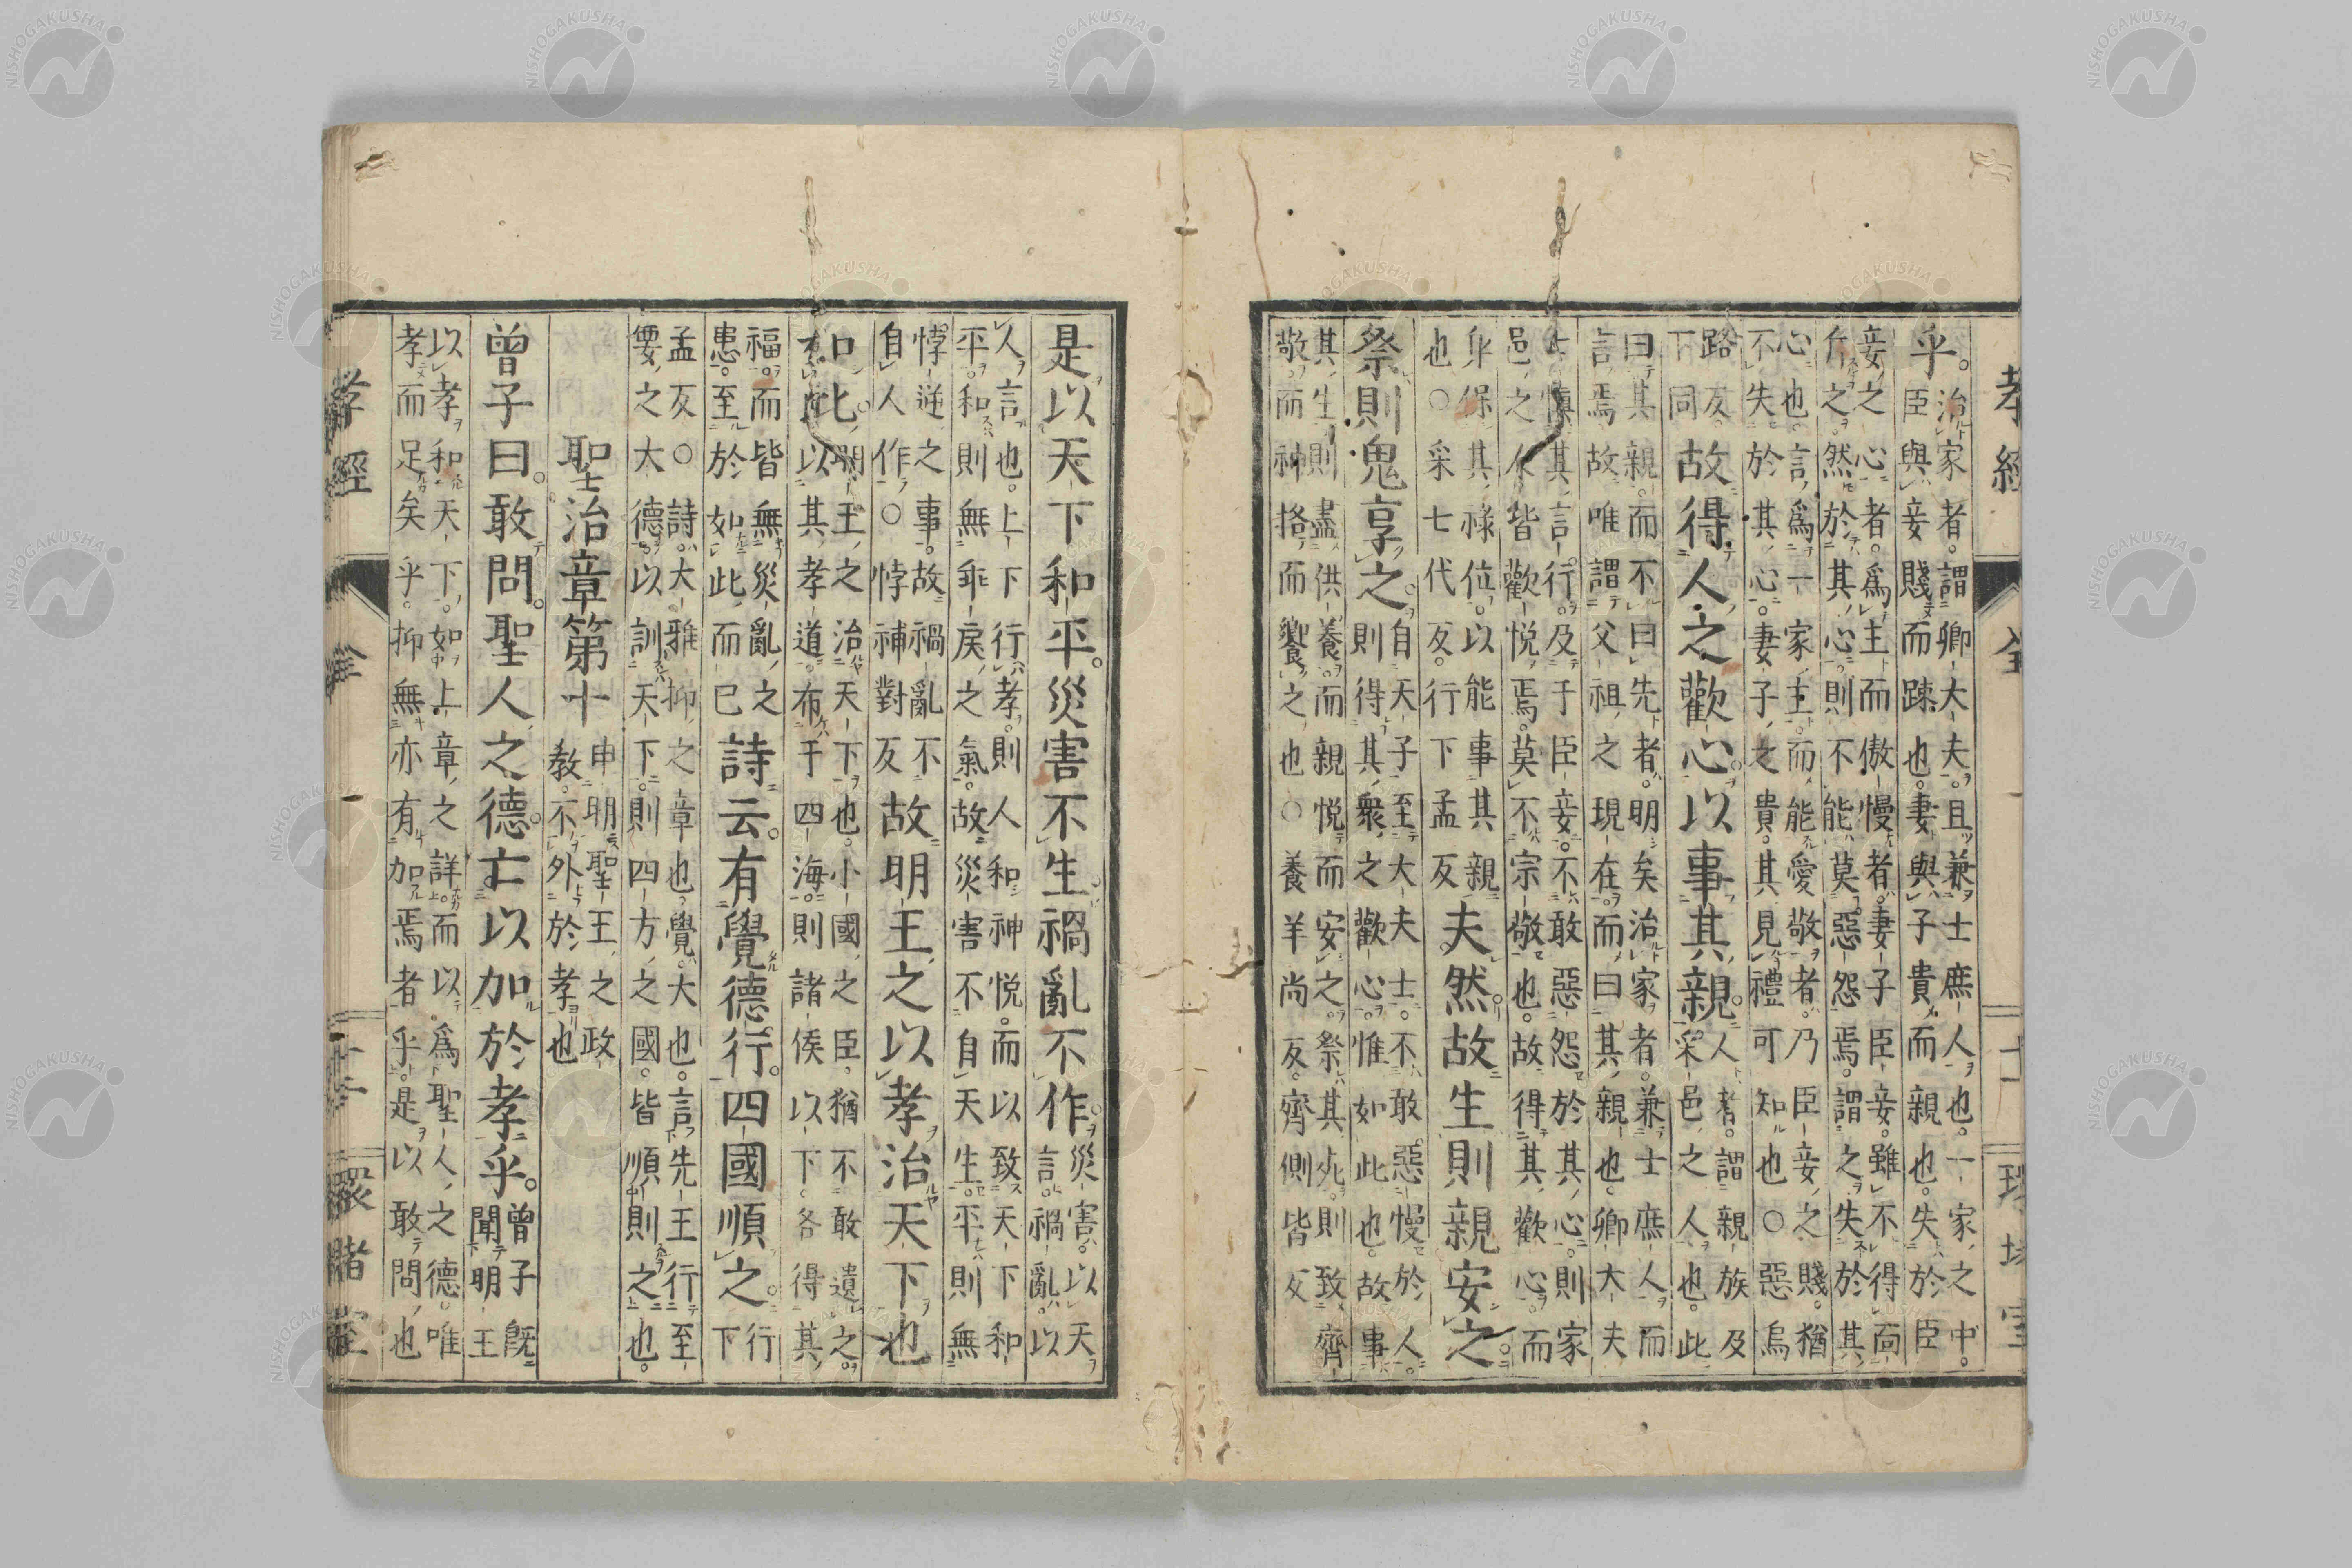 孝經 全
乎。
治家者。謂卿大夫。且兼士庶人也。一家之中。
臣與妾賤而疎也。妻與子貴而親也。失於臣
妾之心者。爲主而傲慢者。妻子臣妾。雖不得面
斥之。然於其心。則不能莫惡怨焉。謂之失於其
心也。言爲一家主。而能愛敬者。乃臣妾之賤。猶
不失於其心。妻子之貴。其見禮可知也〇惡烏
路反
下同
故得人之歡心。以事其親。
人者。謂親族及
采邑之人也。此
曰其親。而不曰先者。明矣治家者。兼士庶人而
言焉。故唯謂父祖之現在。而曰其親也。卿大夫
士愼其言行。及于臣妾。不敢惡怨於其心。則家
邑之人皆歡悦焉。莫不宗敬也。故得其歡心。而
身保其祿位。以能事其親
也〇采七代反。行下孟反
夫然。故生則親安之。
祭則鬼享之。
自天子至大夫士。不敢惡慢於人。
則得其衆之歡心。惟如此也。故事
其生則盡供養。而親悦而安之。祭其死。則致齊
敬。而神格。而饗之也〇養羊尚反。齊側皆反
是以天下和平。災害不生。禍亂不作。
災害。以天
言。禍亂。以
人言也。上下行孝。則人和神悦。而以致天下和
平。和則無乖戻之氣。故災害不自天生。平則無
悖逆之事。故禍亂不
自人作。〇悖補對反
故明王之以孝治天下也
如此。
明王之治天下也。小國之臣。猶不敢遺之。
以其孝道。布于四海。則諸侯以下。各得其
福。而皆無災亂之
患。至於如此而已
詩云。有覺德行。四國順之。
行
下
孟反〇詩。大雅抑之章也。覺。大也。言先王行至
要之大德。以訓天下。則四方之國。皆順則之也。
聖治章第十
申明聖王之政
教。不外於孝也
曾子曰。敢問。聖人之德。亡以加於孝乎。
曾子既
聞明王
以孝和天下。如上章之詳。而以爲聖人之德。唯
孝而足矣乎。抑無亦有加焉者乎。是以敢問也
孝經 全 十二 環堵室
NISHOGAKUSHA